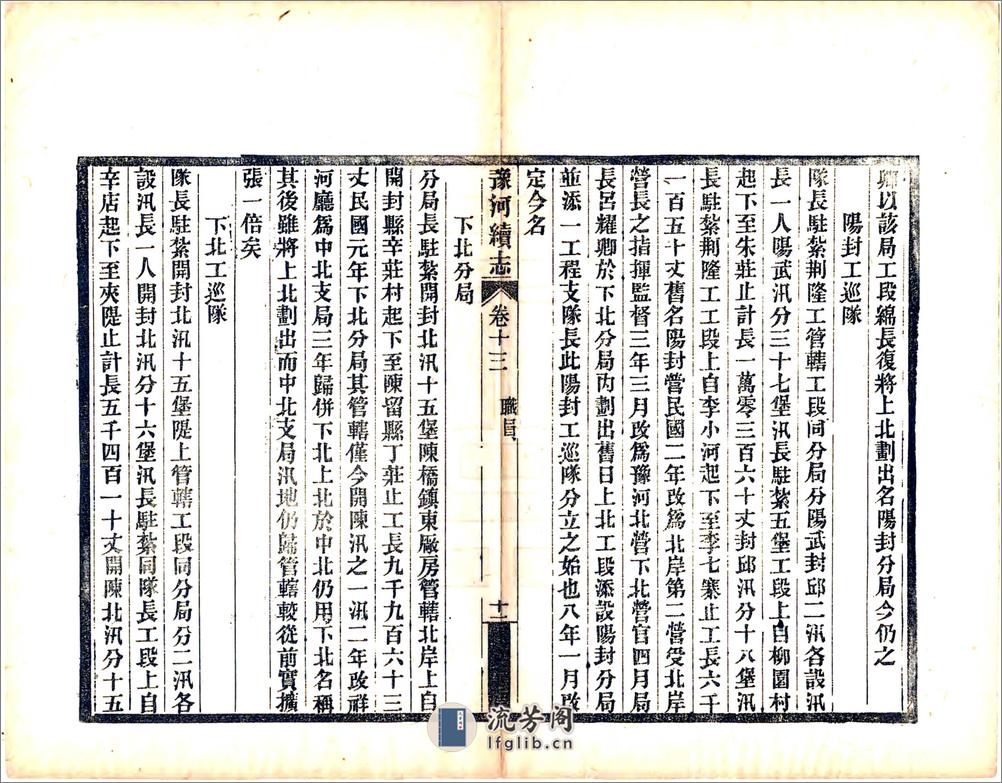 卿以該局工段綿長復將上北劃出名陽封分局今仍之
陽封工巡隊
隊長駐紮荆隆工管轄工段同分局分陽武封邱二汛各設汛
長一人陽武汛分三十七堡汛長駐紮五堡工段上自柳園村
起下至朱莊止計長一萬零三百六十丈封邱汛分十八堡汛
長駐紮荆隆工工段上自李小河起下至李七寨止工長六千
一百五十丈舊名陽封營民國二年改爲北岸第二營受北岸
營長之指揮監督三年三月改爲豫河北營下北營官四月局
長呂耀卿於下北分局內劃出舊日上北工段添設陽封分局
並添一工程支隊長此陽封工巡隊分立之始也八年一月改
定今名
豫河續志 卷十三 職官 十一
下北分局
分局長駐紮開封北汛十五堡陳橋鎮東厰房管轄北岸上自
開封縣辛莊村起下至陳留縣丁莊止工長九千九百六十三
丈民國元年下北分局其管轄僅今開陳汛之一汛二年改祥
河廳爲中北支局三年歸併下北上北於中北仍用下北名稱
其後雖將上北劃出而中北支局汛地仍歸管轄較從前實擴
張一倍矣
下北工巡隊
隊長駐紮開封北汛十五堡隄上管轄工段同分局分二汛各
設汛長一人開封北汛分十六堡汛長駐紮同隊長工段上自
辛店起下至夾隄止計長五千四百一十丈開陳北汛分十五
流芳阁
lfglib.cn